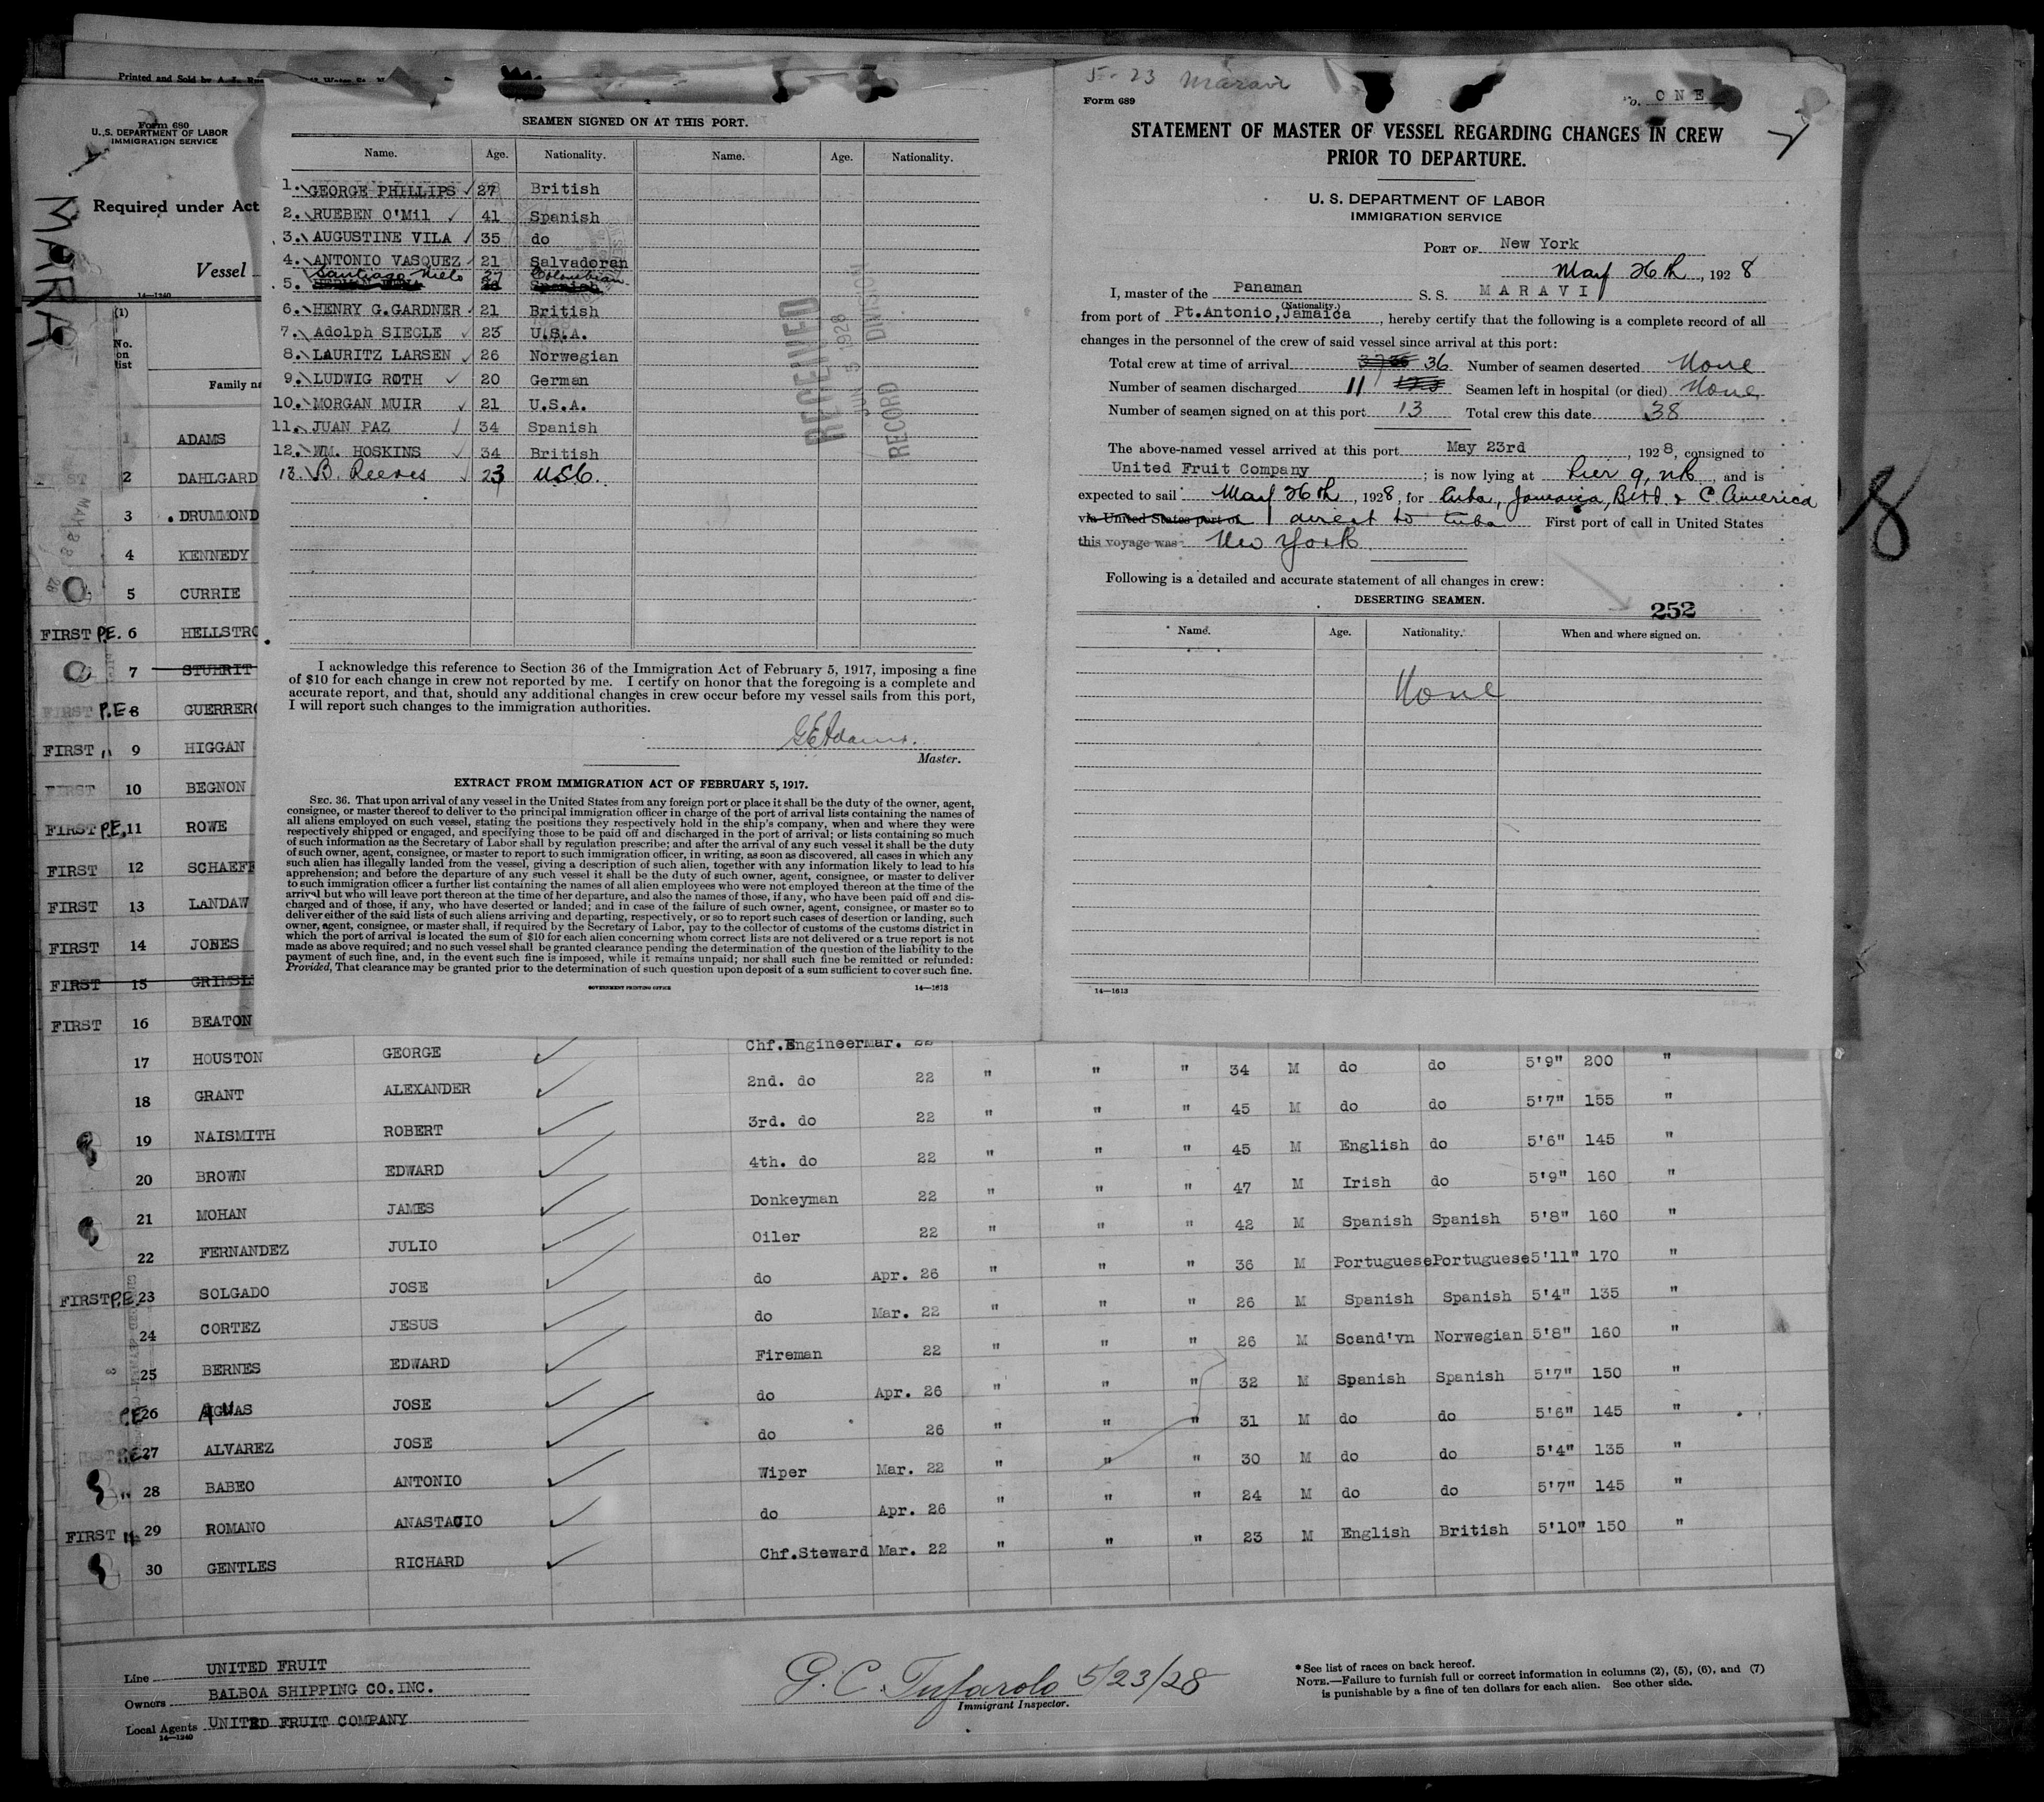 Printed and Sold by
Form 680
U. S. DEPARTMENT OF LABOR
IMMIGRATION SERVICE
MARA
Required under Act
Vessel
14—1240
(1)
No. on list
Family na
1 ADAMS
2 DAHLGARD
3 DRUMMOND
4 KENNEDY
5 CURRIE
FIRST P.E. 6 HELLSTRO
7 STUHRIT
FIRST P.E 8 GUERRERO
FIRST " 9 HIGGAN
FIRST 10 BEGNON
FIRST P.E. 11 ROWE
FIRST 12 SCHAEFF
FIRST 13 LANDAW
FIRST 14 JONES
FIRST 15 GRIMSL
FIRST 16 BEATON
SEAMEN SIGNED ON AT THIS PORT.
Name. Age. Nationality. Name. Age. Nationality.
1. GEORGE PHILLIPS 27 British
2. RUEBEN O'Mil 41 Spanish
3. AUGUSTINE VILA 35 do
4. ANTONIO VASQUEZ 21 Salvadoren
5. Santiago Nielo 27 Colombian
6. HENRY G. GARDNER 21 British
7. Adolph SIEGLE 23 U.S.A.
8. LAURITZ LARSEN 26 Norwegian
9. LUDWIG ROTH 20 German
10. MORGAN MUIR 21 U.S.A.
11. JUAN PAZ 34 Spanish
12. WM. HOSKINS 34 British
13. B. Reeves 23 USC.
RECEIVED
JUN 5 1928
RECORD DIVISION
I acknowledge this reference to Section 36 of the Immigration Act of February 5, 1917, imposing a fine
of $10 for each change in crew not reported by me. I certify on honor that the foregoing is a complete and
accurate report, and that, should any additional changes in crew occur before my vessel sails from this port,
I will report such changes to the immigration authorities.
G E Adams.
Master.
EXTRACT FROM IMMIGRATION ACT OF FEBRUARY 5, 1917.
SEC. 36. That upon arrival of any vessel in the United States from any foreign port or place it shall be the duty of the owner, agent,
consignee, or master thereof to deliver to the principal immigration officer in charge of the port of arrival lists containing the names of
all aliens employed on such vessel, stating the positions they respectively hold in the ship's company, when and where they were
respectively shipped or engaged, and specifying those to be paid off and discharged in the port of arrival; or lists containing so much
of such information as the Secretary of Labor shall by regulation prescribe; and after the arrival of any such vessel it shall be the duty
of such owner, agent, consignee, or master to report to such immigration officer, in writing, as soon as discovered, all cases in which any
such alien has illegally landed from the vessel, giving a description of such alien, together with any information likely to lead to his
apprehension; and before the departure of any such vessel it shall be the duty of such owner, agent, consignee, or master to deliver
to such immigration officer a further list containing the names of all alien employees who were not employed thereon at the time of the
arrival but who will leave port thereon at the time of her departure, and also the names of those, if any, who have been paid off and dis-
charged and of those, if any, who have deserted or landed; and in case of the failure of such owner, agent, consignee, or master so to
deliver either of the said lists of such aliens arriving and departing, respectively, or so to report such cases of desertion or landing, such
owner, agent, consignee, or master shall, if required by the Secretary of Labor, pay to the collector of customs of the customs district in
which the port of arrival is located the sum of $10 for each alien concerning whom correct lists are not delivered or a true report is not
made as above required; and no such vessel shall be granted clearance pending the determination of the question of the liability to the
payment of such fine, and, in the event such fine is imposed, while it remains unpaid; nor shall such fine be remitted or refunded:
Provided, That clearance may be granted prior to the determination of such question upon deposit of a sum sufficient to cover such fine.
GOVERNMENT PRINTING OFFICE 14—1613
5-23 Maravi
Form 689
No. ONE
STATEMENT OF MASTER OF VESSEL REGARDING CHANGES IN CREW
PRIOR TO DEPARTURE.
U. S. DEPARTMENT OF LABOR
IMMIGRATION SERVICE
PORT OF New York
May 26th, 1928
I, master of the Panaman S. S. MARAVI
(Nationality.)
from port of Pt.Antonio, Jamaica, hereby certify that the following is a complete record of all
changes in the personnel of the crew of said vessel since arrival at this port:
Total crew at time of arrival 36 Number of seamen deserted None
Number of seamen discharged 11 Seamen left in hospital (or died) None
Number of seamen signed on at this port 13 Total crew this date 38
The above-named vessel arrived at this port May 23rd, 1928, consigned to
United Fruit Company; is now lying at Pier 9, NR, and is
expected to sail May 26th, 1928, for Cuba, Jamaica, & C. America
via United States port of direct to Cuba First port of call in United States
this voyage was New York.
Following is a detailed and accurate statement of all changes in crew:
DESERTING SEAMEN.
252
Name. Age. Nationality. When and where signed on.
None
14—1613
8
17 HOUSTON GEORGE Chf.Engineer Mar. 22 " " " 34 M do do 5'9" 200 "
18 GRANT ALEXANDER 2nd. do 22 " " " 45 M do do 5'7" 155 "
19 NAISMITH ROBERT 3rd. do 22 " " " 45 M English do 5'6" 145 "
20 BROWN EDWARD 4th. do 22 " " " 47 M Irish do 5'9" 160 "
21 MOHAN JAMES Donkeyman 22 " " " 42 M Spanish Spanish 5'8" 160 "
22 FERNANDEZ JULIO Oiler 22 " " " 36 M Portuguese Portuguese 5'11" 170 "
FIRST P.E. 23 SOLGADO JOSE do Apr. 26 " " " 26 M Spanish Spanish 5'4" 135 "
24 CORTEZ JESUS do Mar. 22 " " " 26 M Scand'vn Norwegian 5'8" 160 "
25 BERNES EDWARD Fireman 22 " " " 32 M Spanish Spanish 5'7" 150 "
P.E. 26 JOSE do Apr. 26 " " " 31 M do do 5'6" 145 "
27 ALVAREZ JOSE do 26 " " " 30 M do do 5'4" 135 "
28 BABEO ANTONIO Wiper Mar. 22 " " " 24 M do do 5'7" 145 "
FIRST 29 ROMANO ANASTACIO do Apr. 26 " " " 23 M English British 5'10" 150 "
30 GENTLES RICHARD Chf.Steward Mar. 22
Line UNITED FRUIT
Owners BALBOA SHIPPING CO.INC.
Local Agents UNITED FRUIT COMPANY
14—1240
G. C. Tufarolo 5/23/28
Immigrant Inspector.
* See list of races on back hereof.
NOTE.—Failure to furnish full or correct information in columns (2), (5), (6), and (7)
is punishable by a fine of ten dollars for each alien. See other side.